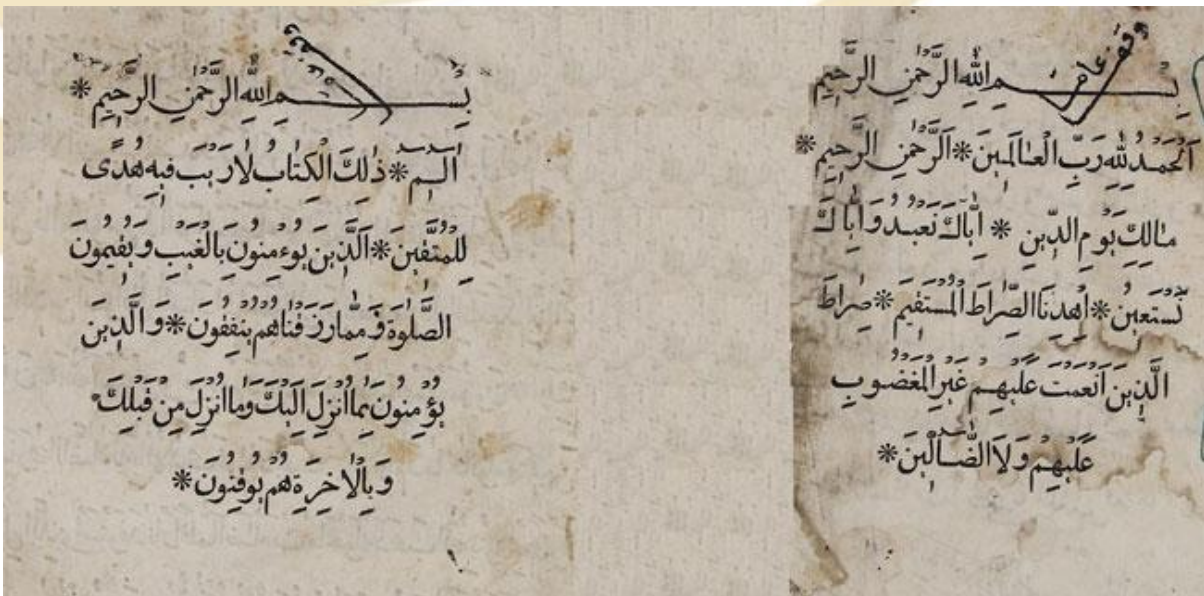 وقف عام
بِسْمِ اللهِ الرَّحْمٰنِ الرَّحِيْمِ *
اَلْحَمْدُ لِلّٰهِ رَبِّ الْعَالَمِينَ * اَلرَّحْمٰنِ الرَّحِيْمِ *
مَالِكِ يَوْمِ الدِّينِ * اِيَّاكَ نَعْبُدُ وَاِيَّاكَ
نَسْتَعِينُ * اِهْدِنَا الصِّرَاطَ الْمُسْتَقِيْمَ * صِرَاطَ
الَّذِينَ اَنْعَمْتَ عَلَيْهِمْ غَيْرِ الْمَغْضُوبِ
عَلَيْهِمْ وَلَا الضَّالِّينَ *
وقف عام
بِسْمِ اللهِ الرَّحْمٰنِ الرَّحِيْمِ *
الٓمٓ * ذٰلِكَ الْكِتَابُ لَا رَيْبَ فِيهِ هُدًى
لِلْمُتَّقِينَ * اَلَّذِينَ يُوءْمِنُونَ بِالْغَيْبِ وَيُقِيمُونَ
الصَّلٰوةَ وَمِمَّا رَزَقْنَاهُمْ يُنْفِقُونَ * وَالَّذِينَ
يُؤْمِنُونَ بِمَا اُنْزِلَ اِلَيْكَ وَمَا اُنْزِلَ مِنْ قَبْلِكَ
وَبِالْاٰخِرَةِ هُمْ يُوقِنُونَ *